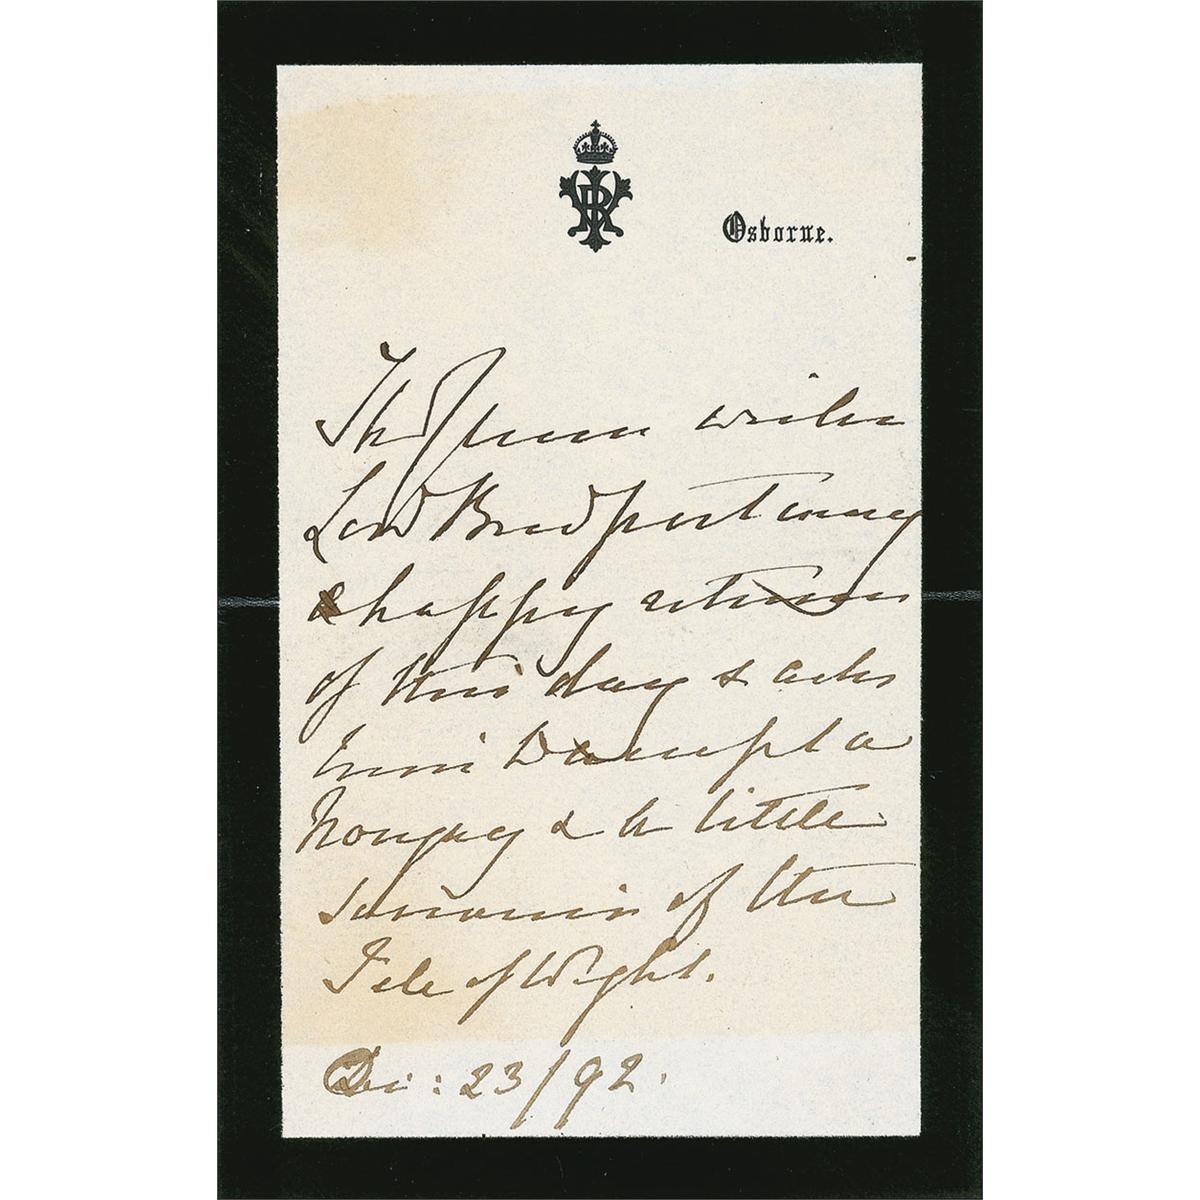 VRI
Osborne.
The Queen wishes
Lord Bridport many
& happy returns
of this day & asks
him to accept a
Nosegay & a little
souvenir of the
Isle of Wight.
Dec: 23/92.